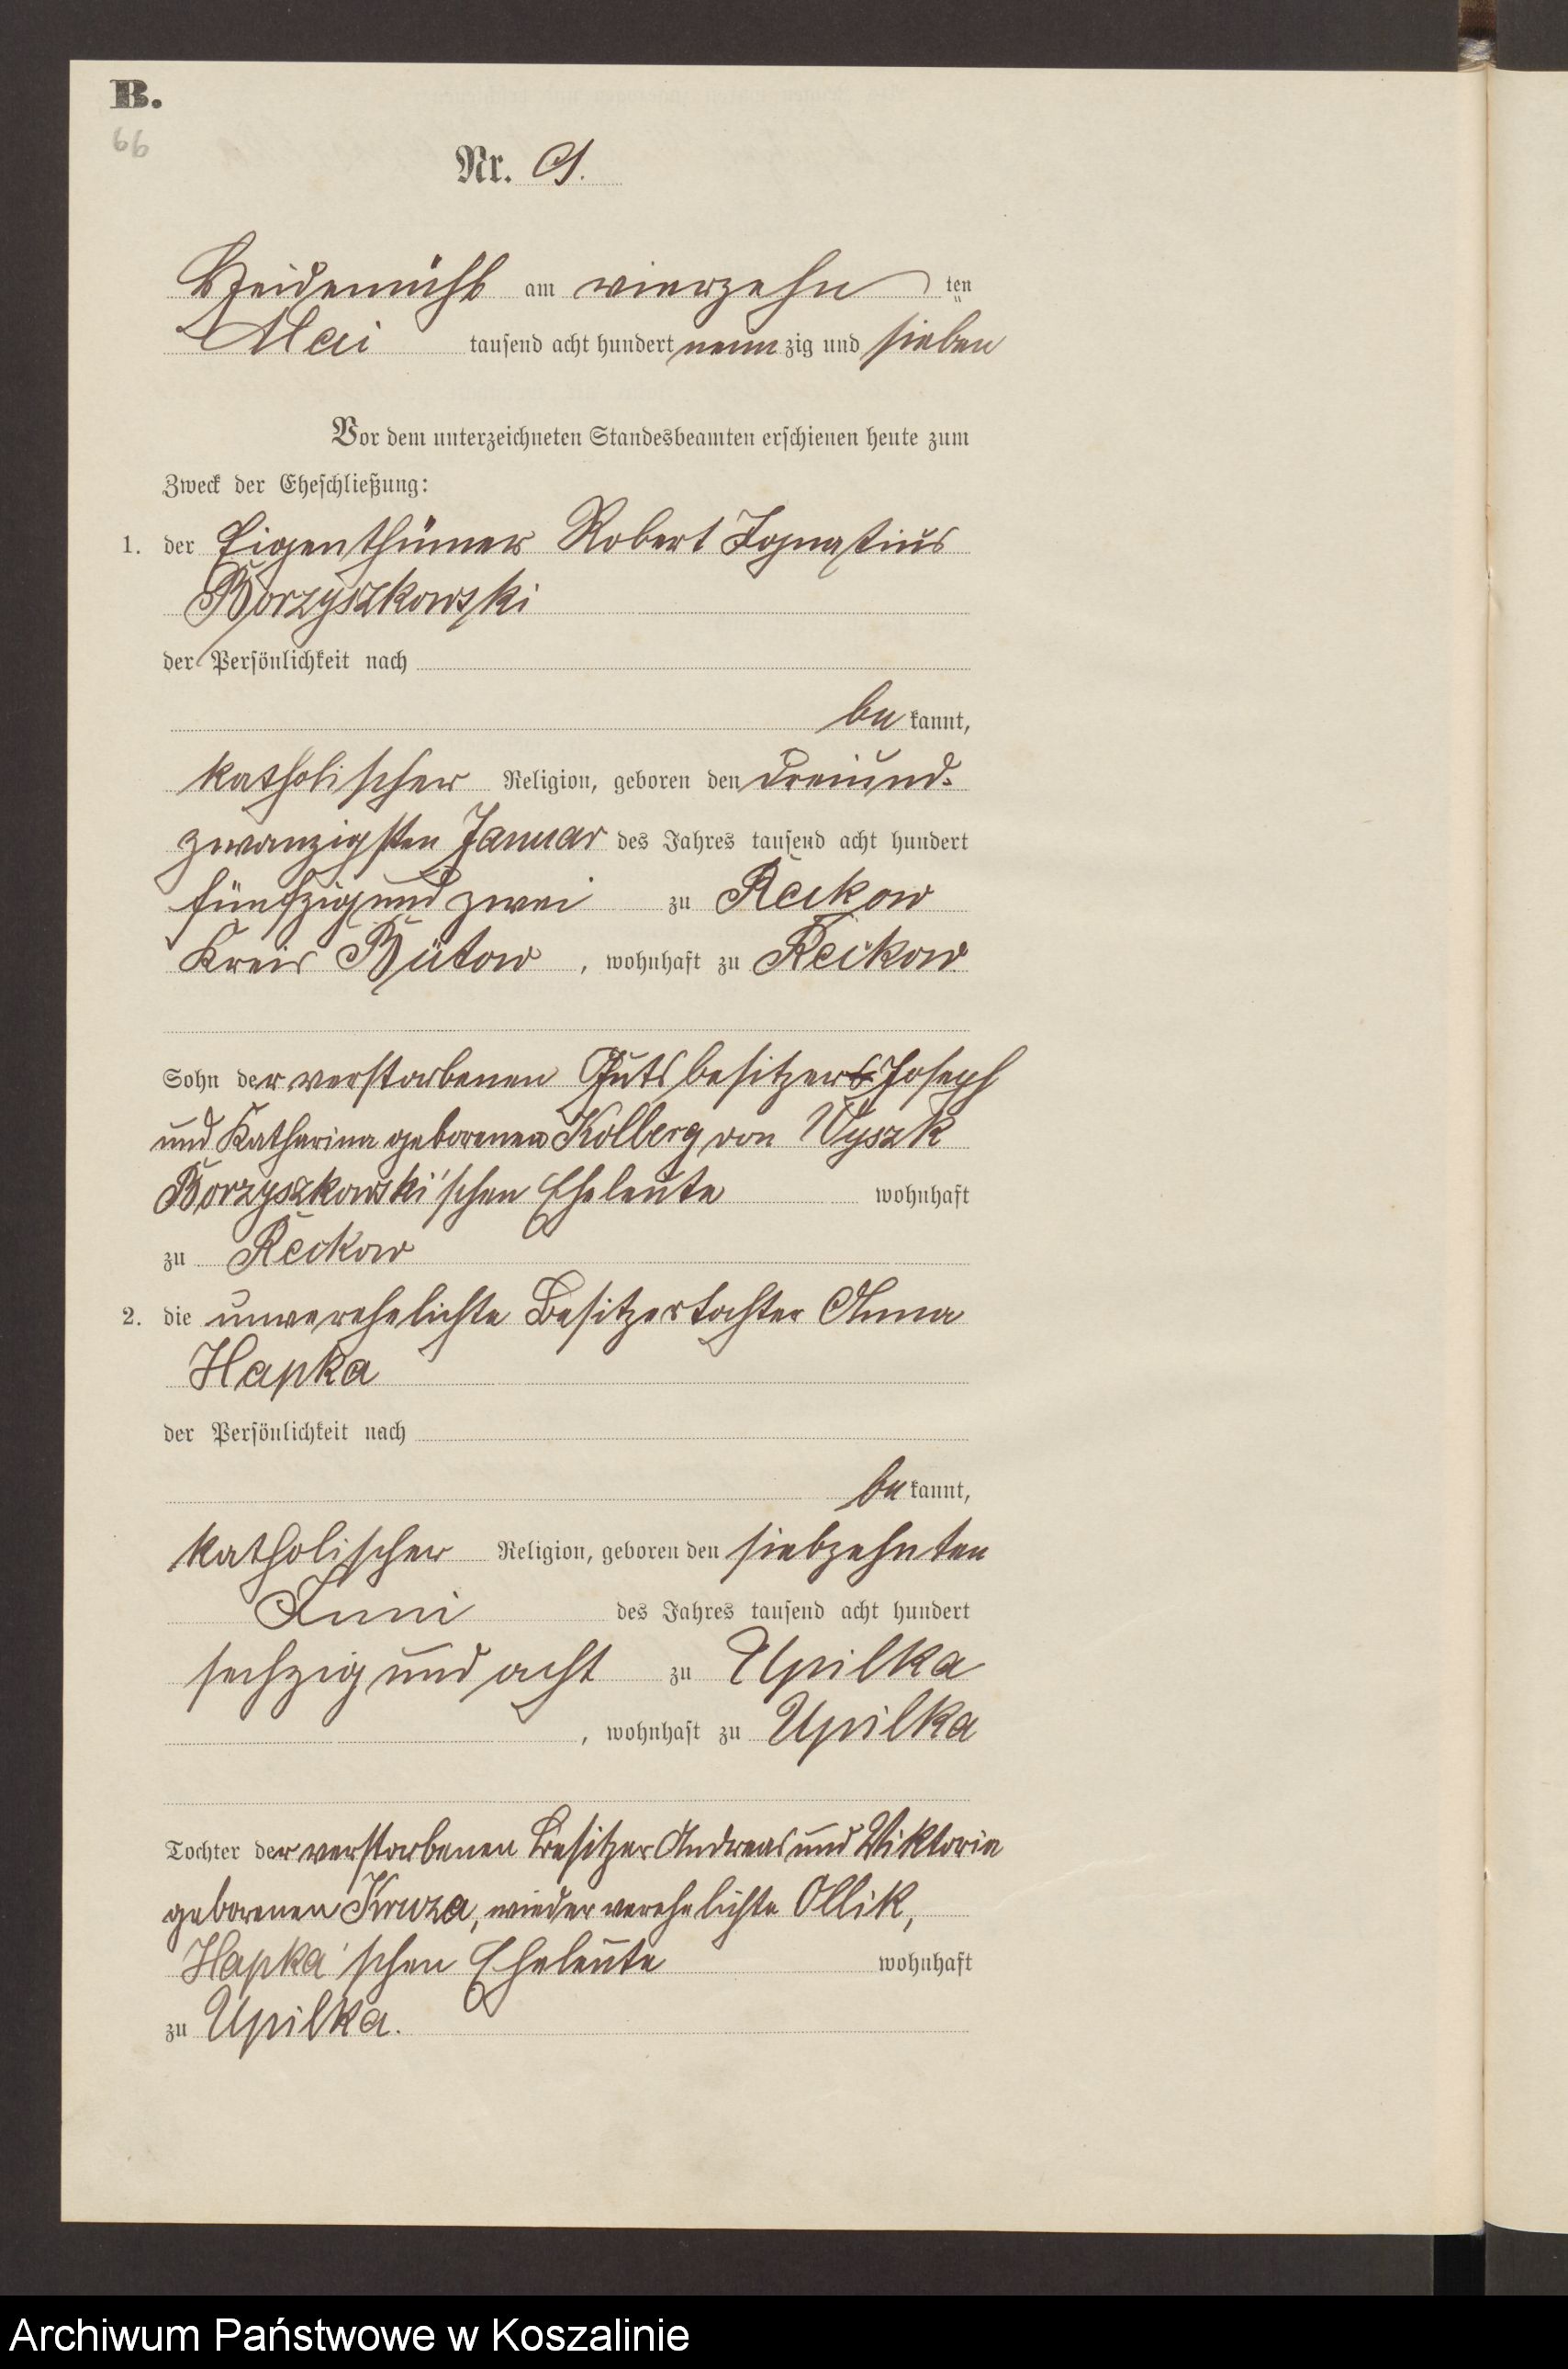 B.
66
Nr. 9.
Heidemühl am vierzehn ten
Mai tausend acht hundert neun zig und sieben
Vor dem unterzeichneten Standesbeamten erschienen heute zum
Zweck der Eheschließung:
1. der Eigenthümer Robert Ignatius
Borzyszkowski
der Persönlichkeit nach
be kannt,
katholischer Religion, geboren den dreiund-
zwanzigsten Januar des Jahres tausend acht hundert
fünfzig und zwei zu Reckow
Kreis Bütow, wohnhaft zu Reckow
Sohn der verstorbenen Gutsbesitzer Joseph
und Katharina geborenen Kolberg von Wyszk
Borzyszkowski'schen Eheleute wohnhaft
zu Reckow
2. die unverehelichte Besitzertochter Anna
Hapka
der Persönlichkeit nach
be kannt,
katholischer Religion, geboren den siebzehnten
Juni des Jahres tausend acht hundert
sechzig und acht zu Upilka
, wohnhaft zu Upilka
Tochter der verstorbenen Besitzer Andreas und Viktoria
geborenen Kruza, wiederverehelichte Ollik,
Hapka'schen Eheleute wohnhaft
zu Upilka.
Archiwum Państwowe w Koszalinie